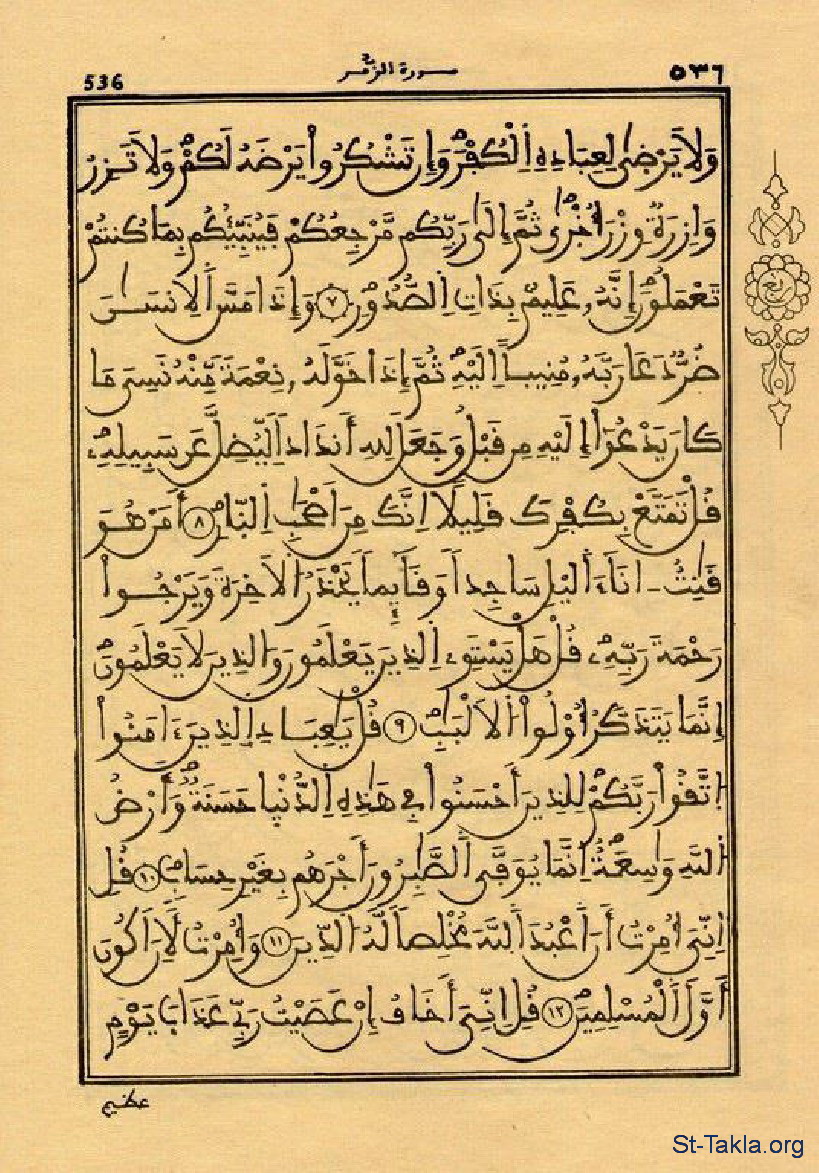 536 سورة الزمر ٥٣٦
وَلَا يَرْضَىٰ لِعِبَادِهِ اِلْكُفْرَ وَإِن تَشْكُرُواْ يَرْضَهُ لَكُمْ وَلَا تَزِرُ
وَازِرَةٌ وِزْرَ أُخْرَىٰ ثُمَّ إِلَىٰ رَبِّكُم مَّرْجِعُكُمْ فَيُنَبِّئُكُم بِمَا كُنتُمْ
تَعْمَلُونَ إِنَّهُ عَلِيمٌ بِذَاتِ اِلصُّدُورِ ٧ وَإِذَا مَسَّ اَلِانسَٰنَ
ضُرٌّ دَعَا رَبَّهُ مُنِيباً اِلَيْهِ ثُمَّ إِذَا خَوَّلَهُ نِعْمَةً مِّنْهُ نَسِيَ مَا
كَانَ يَدْعُوٓاْ إِلَيْهِ مِن قَبْلُ وَجَعَلَ لِلهِ أَندَاداً لِّيُضِلَّ عَن سَبِيلِهِ
قُلْ تَمَتَّعْ بِكُفْرِكَ قَلِيلًا اِنَّكَ مِنَ اَصْحَٰبِ اِلنّ۪ارِ ٨ أَمَنْ هُوَ
قَٰنِتٌ ـ انَآءَ اَليْلِ سَاجِداً وَقَآئِماً يَحْذَرُ اُلَاخِرَةَ وَيَرْجُواْ
رَحْمَةَ رَبِّهِ قُلْ هَلْ يَسْتَوِے اِلذِينَ يَعْلَمُونَ وَالذِينَ لَا يَعْلَمُونَ
إِنَّمَا يَتَذَكَّرُ أُوْلُواْ اُلَالْبَٰبِ ٩ قُلْ يَٰعِبَادِ اِلذِينَ ءَامَنُواْ
اِتَّقُواْ رَبَّكُمْ لِلذِينَ أَحْسَنُواْ فِے هَٰذِهِ اِلدُّنْي۪ا حَسَنَةٌ وَأَرْضُ
اُللَّهِ وَٰسِعَةٌ اِنَّمَا يُوَفَّى اَلصَّٰبِرُونَ أَجْرَهُم بِغَيْرِ حِسَابٍ ١٠ قُلِ
اِنِّيَ أُمِرْتُ أَنَ اَعْبُدَ اَللَّهَ مُخْلِصاً لَّهُ اُلدِّينَ ١١ وَأُمِرْتُ لِأَنَ اَكُونَ
أَوَّلَ اَلْمُسْلِمِينَ ١٢ قُلِ اِنِّيَ أَخَافُ إِنْ عَصَيْتُ رَبِّے عَذَابَ يَوْمٍ
عظيم
St-Takla.org